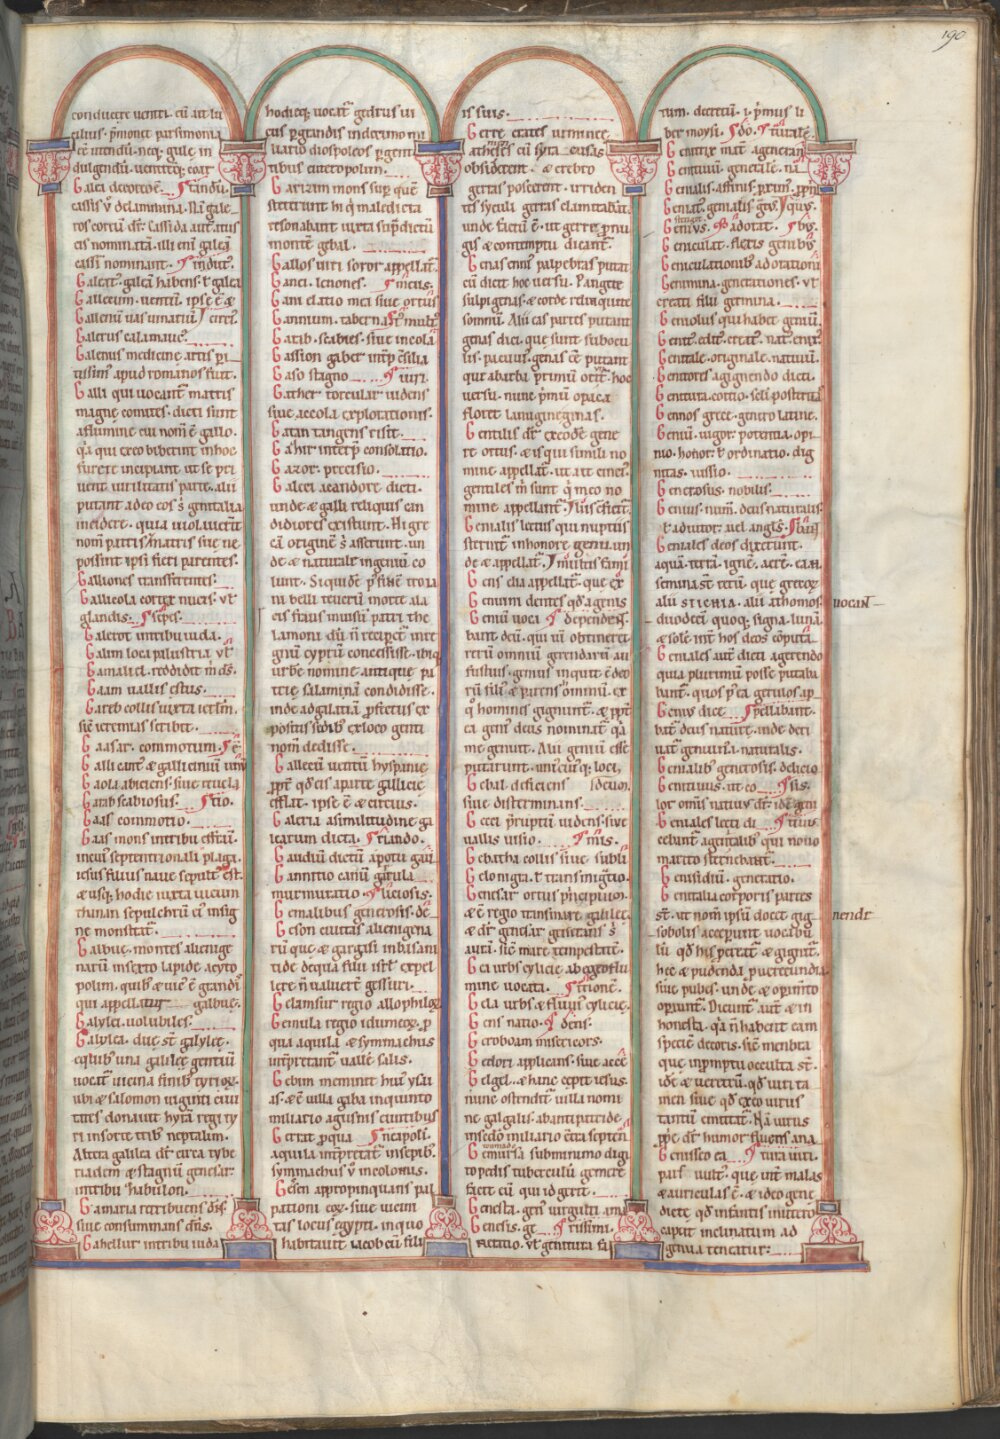 190
conducere uenti. cū aut lu
xilius. p̄monet parsimoniā
eē intendū. neq; gule in
dulgendū. uentreq; coar
Galea decorio ē. ctandū.
cassis ū de lammina. Nā gale
ros coriū dr̄. Cassida aut a tus
cis nominatā. illi enī galeā
cassē nominant. indut.
Galeat. galeā habens. ł galea
Gallecum. uentū. ipse ē &
Gallenū uas uinariū circi.
Galerus calamauc.
Galenus medicine artis pi
tissim apud romanos fuit.
Galli qui uocant matris
magne comites. dicti sunt
a flumine cui nom̄ ē gallo.
q̄a qui ex eo biberint in hoc
furere incipiant ut se pri
uent uirilitatis parte. alii
putant adeo eos s̄ genitalia
incidere. quia uiolauerūt
nom̄ patris matris siue ne
possint ipsi fieri parentes.
Galliones transferentes.
Gallicola cortex nucis. uł
glandis. sepis.
Galerot in tribu iuda.
Galim loca palustria uł
Gamaliel. reddidit m̄ ds̄.
Gaam uallis estus.
Gareb collis iuxta ierlm̄.
sic ieremias scribit.
Gaasar. commotum. ē
Galli cant & galli einiū um
Gaola abiciens. siue reuela
Garab scabiosus. tio.
Gaas comotio.
Gaas mons in tribu effraī.
in cui septentrionali plaga.
iesus filius naue sepult est.
& usq; hodie iuxta uicum
thnan sepulchrū ei insig
ne monstrat.
Galbue. montes alienige
narū in sexto lapide a scyto
polim. quib; & uic ē grandi
qui appellatur galbue.
Galylei. uolubiles.
Galylea. due st̄ galylee.
e quib; una galilee gentiū
uocat uicina finib; tyriox.
ubi & salomon uiginti ciui
tates donauit hyrā regi ty
ri in sorte trib; neptalim.
Altera galilea dr̄ circa tybe
riadem & stagnū genesar.
in tribu zabulon.
Gamaria retribuens dñs.
siue consummans dn̄s.
Gabellur in tribu iuda
hodieq; uocat gedrus ui
cus pgrandis in decimo mi
liario diospoleos pgent
tibus euteropolim.
Garizim mons sup quē
steterunt hi q̄ maledicta
resonabant iuxta sup dictū
monte gebal.
Gallos uiri soror appellat.
Ganei. lenones. incus.
Gani elatio mea siue ortus
Gannium. taberna mult
Garib. scabies. siue incola
Gassion gaber interp c̄silia
Gaso stagno uiri.
Gather torcular uidens
siue accola explorationis.
Gatan tangens risit.
Gahir interp̄ consolatio.
Gazor. precisio.
Galeei a candore dicti.
unde & galli reliquis can
didiores existunt. Hi gre
cā originē s̄ asserunt. un
de & naturale ingeniū co
lunt. Siquidē p̄ finē troia
ni belli teucriū morte aia
cis fratris inuisū patri the
lamoni. dū n̄ reciperet in re
gnū cyprū concessisse. ibiq;
urbe nomine antique pa
trie salaminā condidisse.
inde ad galatiā profectus ex
positis sedib; ex loco genti
nom̄ dedisse.
Galleciū uentū hyspanie
ppt qd̄ eis a parte gallicie
efflat. ipse ē & circius.
Galeria a similitudine ga
learum dicta. triando.
Gaudiū dictū aptu gau
Gannitio canū garrula
murmuratio. liciosis.
Gemalibus generosis. de
Geson ciuitas alienigena
rū que & gargasi in basani
tide de qua filii isrl̄ expel
lere n̄ ualuere gessuri.
Gelamsur regio allophilox
Gemula regio idumeox. p
qua aquila & symmachus
int̄pretant ualle salis.
Gebim meminit hui ysai
as. & ē uilla gaba in quinto
miliario a gufnis euntibus
Gerrar p qua neapoli.
aquila int̄pretat in sepib.
symmachus ū incolonis.
Gesen appropinquans pal
pationi eox. siue uicini
tas locus egypti. in quo
habitauit iacob cū filii
is suis.
Gerre crates uiminee.
athenes cū syra cusas
obsiderent. & crebro
gerras poscerent. irriden
tes syculi gerras clamitabāt
unde factū ē. ut gerre p nu
gis & contemptu dicant.
Genas enni palpebras putat
cū dicit hoc uersu. Pangite
sulpi genas. & corde relinquite
somnū. Alii eas partes putant
genas dici. que sunt sub ocu
lis. pacuuius. genas ēē putant
que a barba primū orit. hoc
uersu. nunc p̄mū opaca
floret lanugine genas.
Gentilis dr̄ ex eodē gene
re ortus. & is qui simili no
mine appellat. ut ait cincі
gentiles m̄ sunt q̄ meo no
mine appellant. iuīs effecti.
Genialis lectus qui nuptiis
sternit in honore genii. un
de & appellat. multis fami
Gens elia appellat. que ex
Genuini dentes qd̄ a genis
Geniū uoca dependent.
bant deū. qui uī obtineret
rerū omniū gerendarū au
fustius. genius inquit ē deo
rū filius & parens ōminū. ex
q̄ homines gignunt. & ppt
ea geni deus nominat. q̄a
me genuit. Alii geniū esse
putarunt. uni cui q; loci.
Gebal. deficiens deum.
siue disterminans.
Geei pruptū uidens. siue
uallis uisio. mis.
Gebatha collis siue subli
Gelo nigra. ł transmigtio.
Genesar ortus principium.
& ē regio trans mare galilee
& dr̄ genesar generans s̄
aurā. siē mare tempestate.
Gea urbs cylicie ab ego flu
mine uocata. trionē.
Gela urbs & fluuī cylicie.
Gens natio. dens.
Geroboam misericors.
Gedori applicans. siue acce
Gelgel. & hanc cepit iesus.
nunc ostendit uilla nomi
ne galgalis. abantipatride
in sedo miliario cēta septen
Gemursa sub minimo digi
to pedis tuberculū gemere
facit eū qui id gerit.
Genesta. gen uirgulti ama
Genesis. ge rissimi.
neratio. uł genitura si
rum. decretū. i. p̄mus li
ber moysi. do. turale.
Genitrix mat. agenerando
Genituū. generale. na
Genialis. affinis. parum. ppin
Geniat. genialis. geus. quus.
Genius. adorat. bus.
Geniculat. flexis genib;
Geniculationib; adoratioib;
Gemmina. generationes. uł
creati filii germina.
Geniolus qui habet geniū.
Genit. edit. creat. nat. enix
Genitale. originale. natiuū.
Genitoris a gignendo dicti.
Genitura. cotio. seli posterita
Gennos grece. genero latine.
Geniū. uigor. potentia. opi
nio. honor. ł ordinatio. dig
nitas. iussio.
Generosus. nobilis.
Genius. num. deus naturalis
ł adiutor. uel anglꝰ.
Geniales deos dixerunt.
aquā. terrā. ignē. aerē. eam
semina st̄ rerū. que grecox
alii stichia. alii athomos uocant
duodecī quoq; signa. lunā
& solē. in ht hos deos cōputā
Geniales aut dicti a gerendo
quia plurimū posse putaba
bant. quos p̄ ea gerulos ap
Genius dice pellabant.
bat deus nature. inde deri
uat genuina. naturalis.
Genialib; generosis. delicio
Genitiuus. ut co sis.
lor om̄is natiuus dr̄. idē & geni
Geniales lecti di tius.
cebant a genitalib; qui nouo
marito sternebant.
Genisidiū. generatio.
Genitalia corporis partes
st̄. ut nom̄ ipsū docet gig nendt
sobolis acceperunt uocabu
lū. qd̄ his pereat & gignit.
hec & pudenda puerecundia
siue pubes. unde & opimto
opiunt. Dicunt aut & in
honesta. q̄a n̄ habent eam
speciē decoris. siē membra
que in promptu occulta st̄.
idē & ueretrū. qd̄ uiri ta
men siue qd̄ ex eo uirus
tantū emittat. Nā uirus
ppe dr̄ humor fluens ana
Genisceo ea tura uiri.
pars uult. que int malas
& auriculas ē. & ideo gene
dicte qd̄ infantis in utero
caput inclinatum ad
genua teneatur.